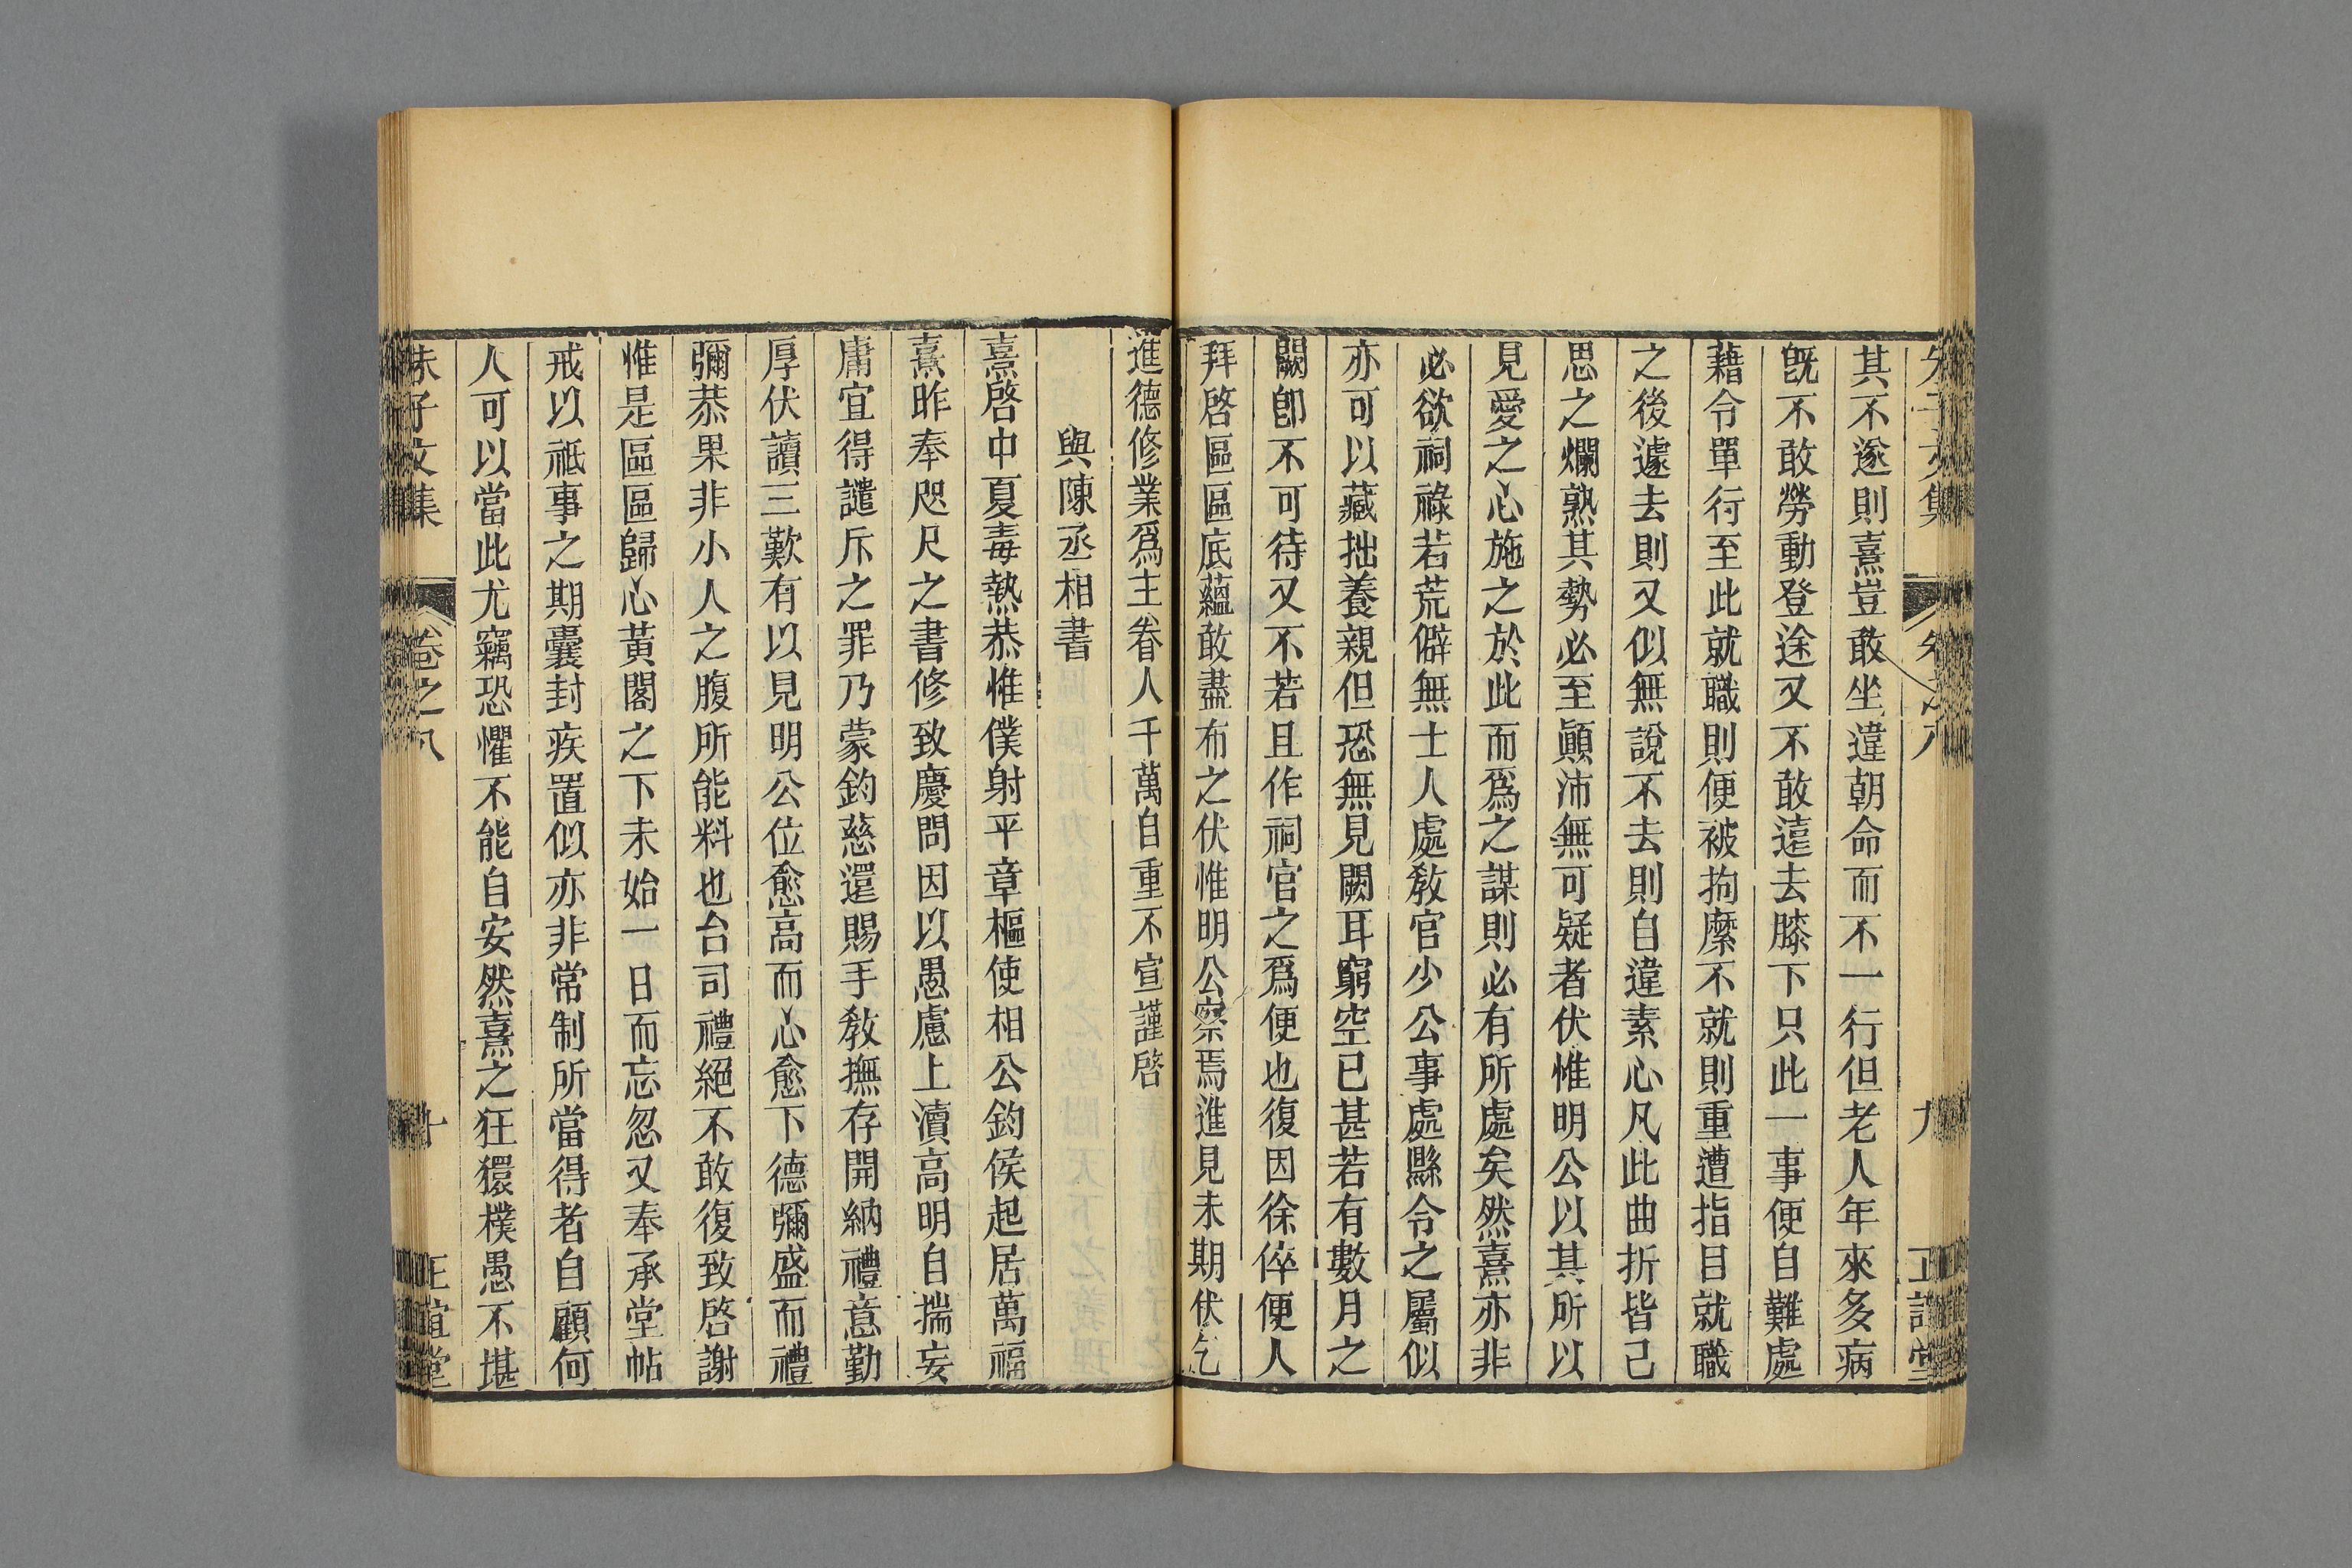 朱子文集 卷之八 九 正誼堂
其不遂則熹豈敢坐違朝命而不一行但老人年來多病
旣不敢勞動登途又不敢遠去膝下只此一事便自難處
藉令單行至此就職則便被拘縻不就則重遭指目就職
之後遽去則又似無說不去則自違素心凡此曲折皆己
思之爛熟其勢必至顚沛無可疑者伏惟明公以其所以
見愛之心施之於此而爲之謀則必有所處矣然熹亦非
必欲祠祿若荒僻無士人處敎官少公事處縣令之屬似
亦可以藏拙養親但恐無見闕耳窮空已甚若有數月之
闕卽不可待又不若且作祠官之爲便也復因徐倅便人
拜啓區區底蘊敢盡布之伏惟明公察焉進見未期伏乞
進德修業爲主眷人千萬自重不宣謹啓
與陳丞相書
熹啓中夏毒熱恭惟僕射平章樞使相公鈞候起居萬福
熹昨奉咫尺之書修致慶問因以愚慮上瀆高明自揣妄
庸宜得譴斥之罪乃蒙鈞慈還賜手敎撫存開納禮意勤
厚伏讀三歎有以見明公位愈高而心愈下德彌盛而禮
彌恭果非小人之腹所能料也台司禮絕不敢復致啓謝
惟是區區歸心黃閣之下未始一日而忘忽又奉承堂帖
戒以祗事之期囊封疾置似亦非常制所當得者自顧何
人可以當此尤竊恐懼不能自安然熹之狂獧樸愚不堪
朱子文集 卷之八 十 正誼堂